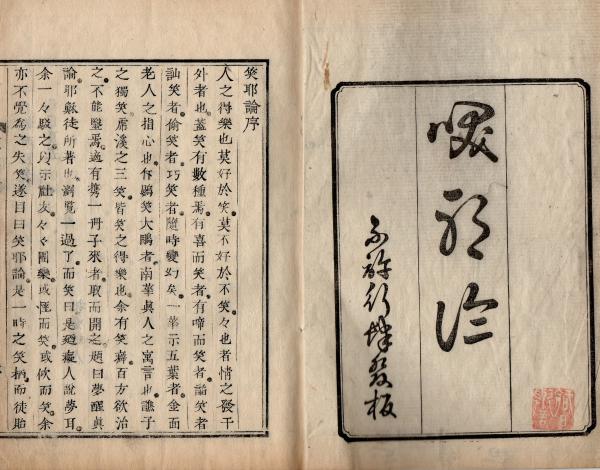 咲耶論
笑耶論序
人之得樂也莫好於笑莫不好於不笑々也者情之發于
外者也蓋笑有數種焉有喜而笑者有啼而笑者諂笑者
訕笑者偷笑者巧笑者隨時變幻矣一華示五葉者金面
老人之指心也斥鷃笑大鵬者南華眞人之寓言也譙子
之獨笑虎溪之三笑皆笑之得樂也余有笑癖百方欲治
之不能毉焉適有携一冊子來者取而開之題曰夢醒眞
論耶蘇徒所著也瀏覧一過了而笑曰是廼癡人說夢耳
余一々駁之以示社友々々團欒或怪而笑或欣而笑余
亦不覺為之失笑遂目曰笑耶論是一時之笑柄而徒胎